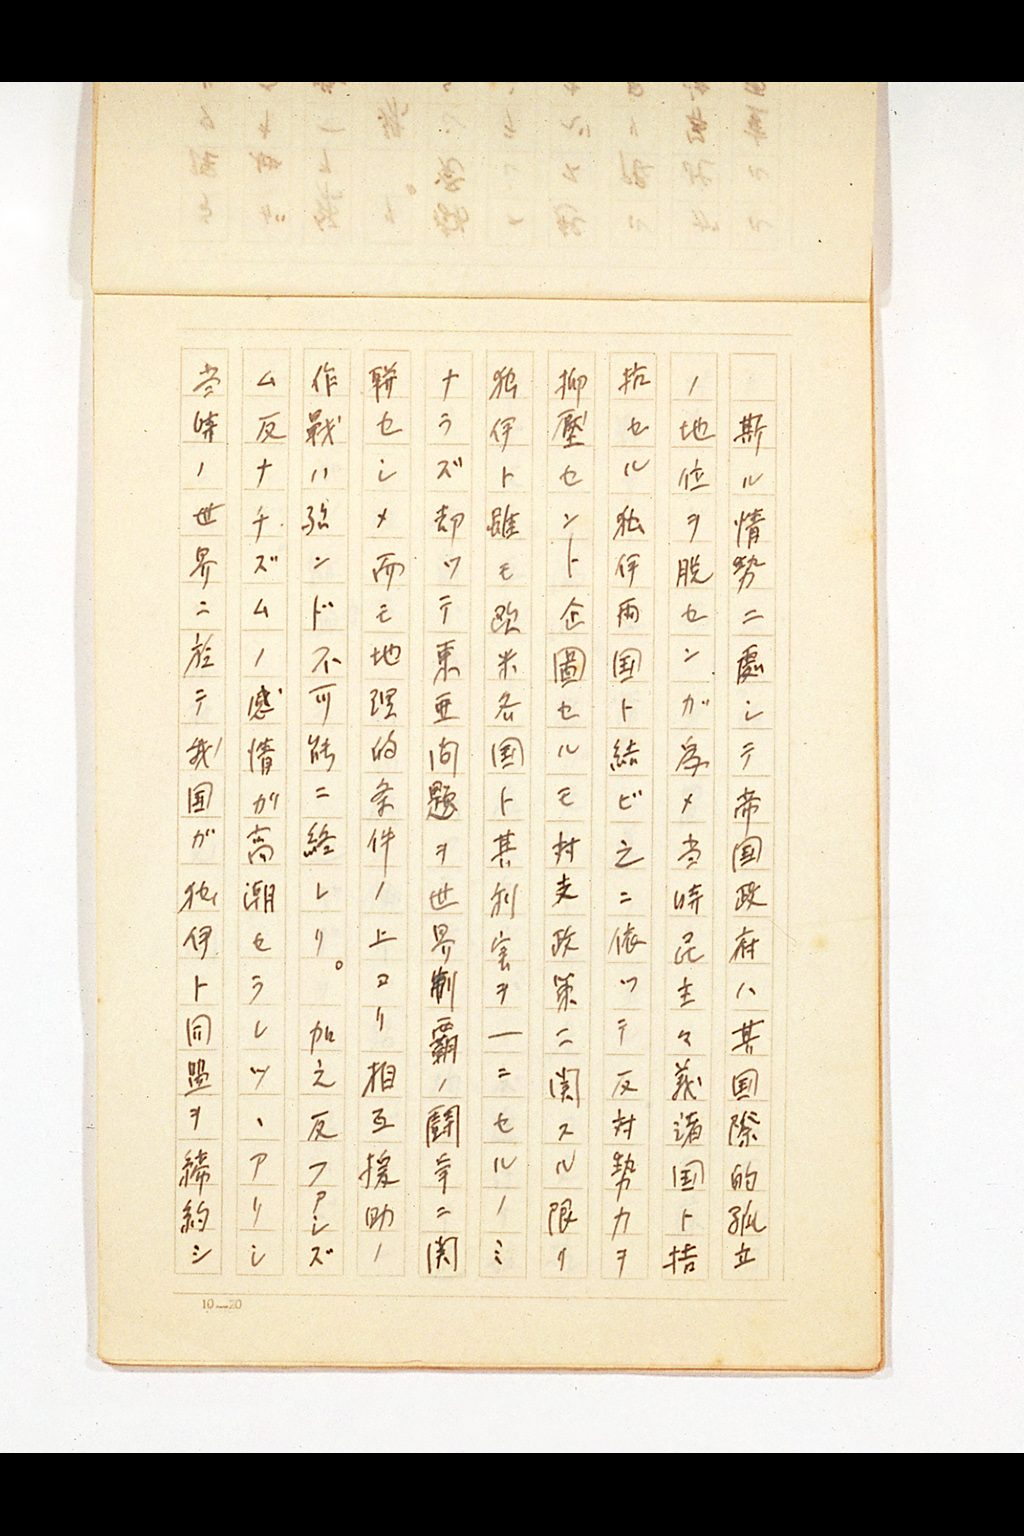 斯ル情勢ニ処シテ帝国政府ハ其国際的孤立
ノ地位ヲ脱センガ為メ当時民主々義諸国ト拮
抗セル独伊両国ト結ビ之ニ依ツテ反対勢力ヲ
抑壓セント企圖セルモ対支政策ニ関スル限リ
独伊ト雖モ欧米各国ト其利害ヲ一ニセルノミ
ナラズ却ツテ東亜問題ヲ世界制覇ノ闘争ニ関
聯セシメ而モ地理的条件ノ上ヨリ相互援助ノ
作戦ハ殆ンド不可能ニ終レリ。加之反フアシズ
ム反ナチズムノ感情ガ高潮セラレツヽアリシ
当時ノ世界ニ於テ我国ガ独伊ト同盟ヲ締約シ
10—20